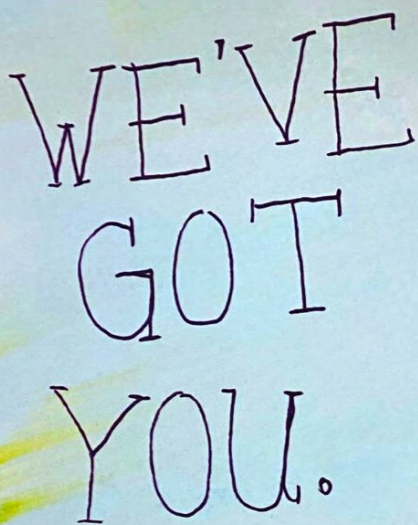 WE'VE
GOT
YOU.